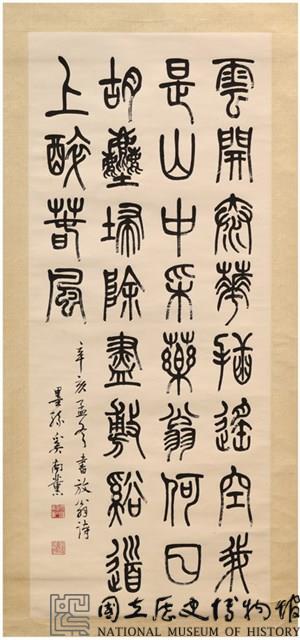 雲開泰華插遙空我
是山中采藥翁何日
胡塵掃除盡敷谿道
上醉春風
辛亥孟冬書放翁詩
墨孫奚南薰
國立歷史博物館
NATIONAL MUSEUM OF HISTORY